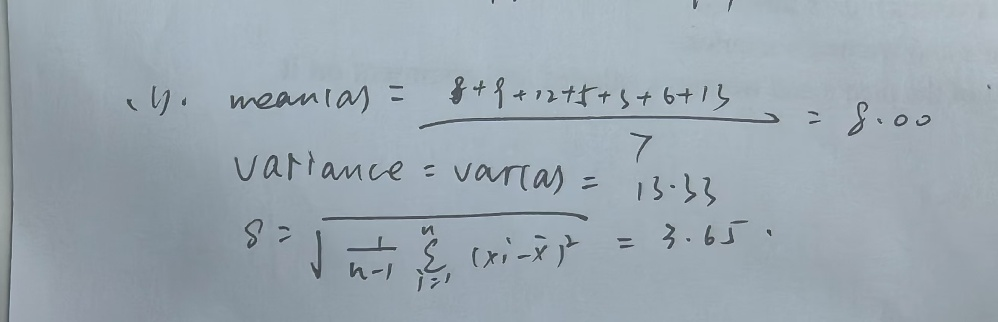 (1). mean(a) = 8+9+12+5+3+6+13 / 7 = 8.00
variance = var(a) = 13.33
s = √(1/(n-1) Σ_{i=1}^{n} (xi-x̄)²) = 3.65.